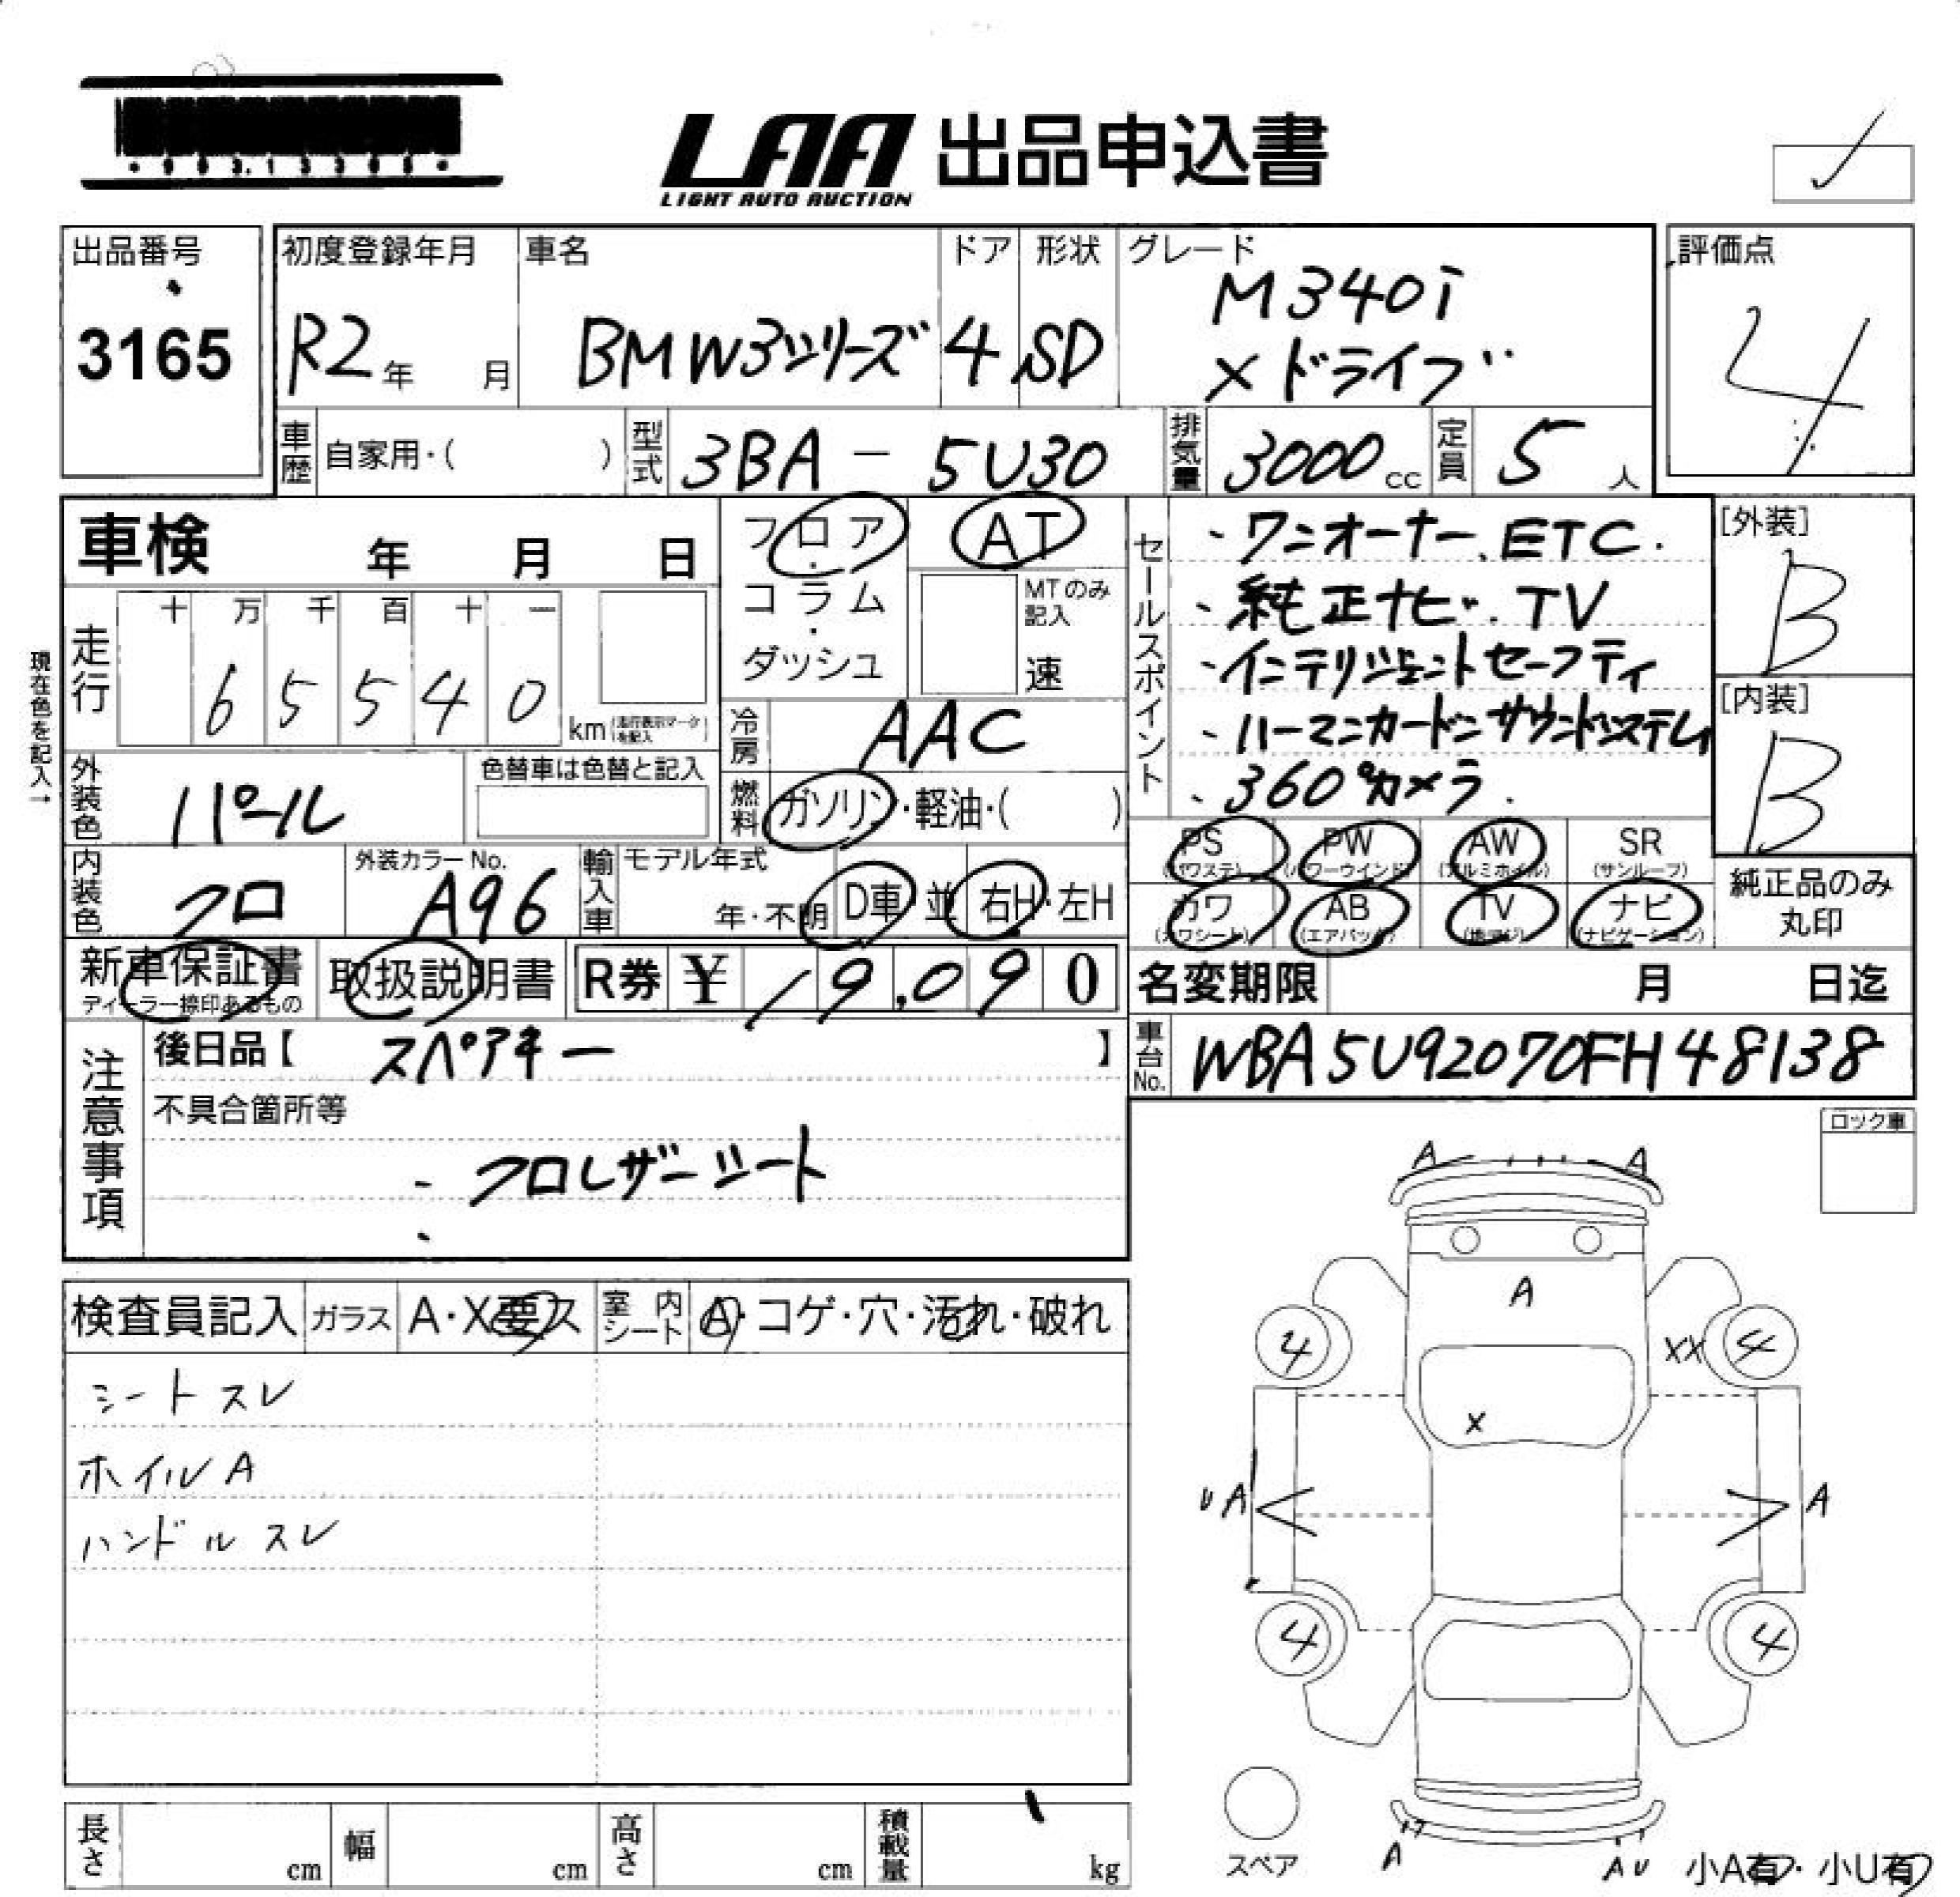 LAA 出品申込書
LIGHT AUTO AUCTION
出品番号
3165
初度登録年月
R2年 月
車名
BMW3シリーズ
ドア
4
形状
SD
グレード
M340i
Xドライブ
評価点
4
車歴 自家用・( )
型式 3BA-5U30
排気量 3000cc
定員 5人
車検 年 月 日
フロア・コラム・ダッシュ
AT
MTのみ記入
速
セールスポイント
・ワンオーナー、ETC.
・純正ナビ・TV
・インテリジェントセーフティ
・ハーマンカードンサウンドシステム
・360°カメラ.
[外装]
B
[内装]
B
現在色を記入→
走行
十 万 千 百 十 一
6 5 5 4 0
km(走行表示マークを記入)
冷房 AAC
外装色 パール
色替車は色替と記入
燃料 ガソリン・軽油・( )
内装色 クロ
外装カラーNo.
A96
輸入車
モデル年式
年・不明
D車 並
右H・左H
PS
(パワステ)
PW
(パワーウインド)
AW
(アルミホイル)
SR
(サンルーフ)
カワ
(カワシート)
AB
(エアバッグ)
TV
(地デジ)
ナビ
(ナビゲーション)
純正品のみ
丸印
新車保証書
ディーラー捺印あるもの
取扱説明書
R券 ¥ 19,090
名変期限 月 日迄
注意事項
後日品【 スペアキー 】
車台No. WBA5U92070FH48138
不具合箇所等
- クロレザーシート
ロック車
検査員記入 ガラス A・X要ス
室内シート A・コゲ・穴・汚れ・破れ
シートスレ
ホイルA
ハンドルスレ
A A
A
4 XX 4
X
UA A
4 4
A AU
スペア
小A有・小U有
長さ cm 幅 cm 高さ cm 積載量 kg